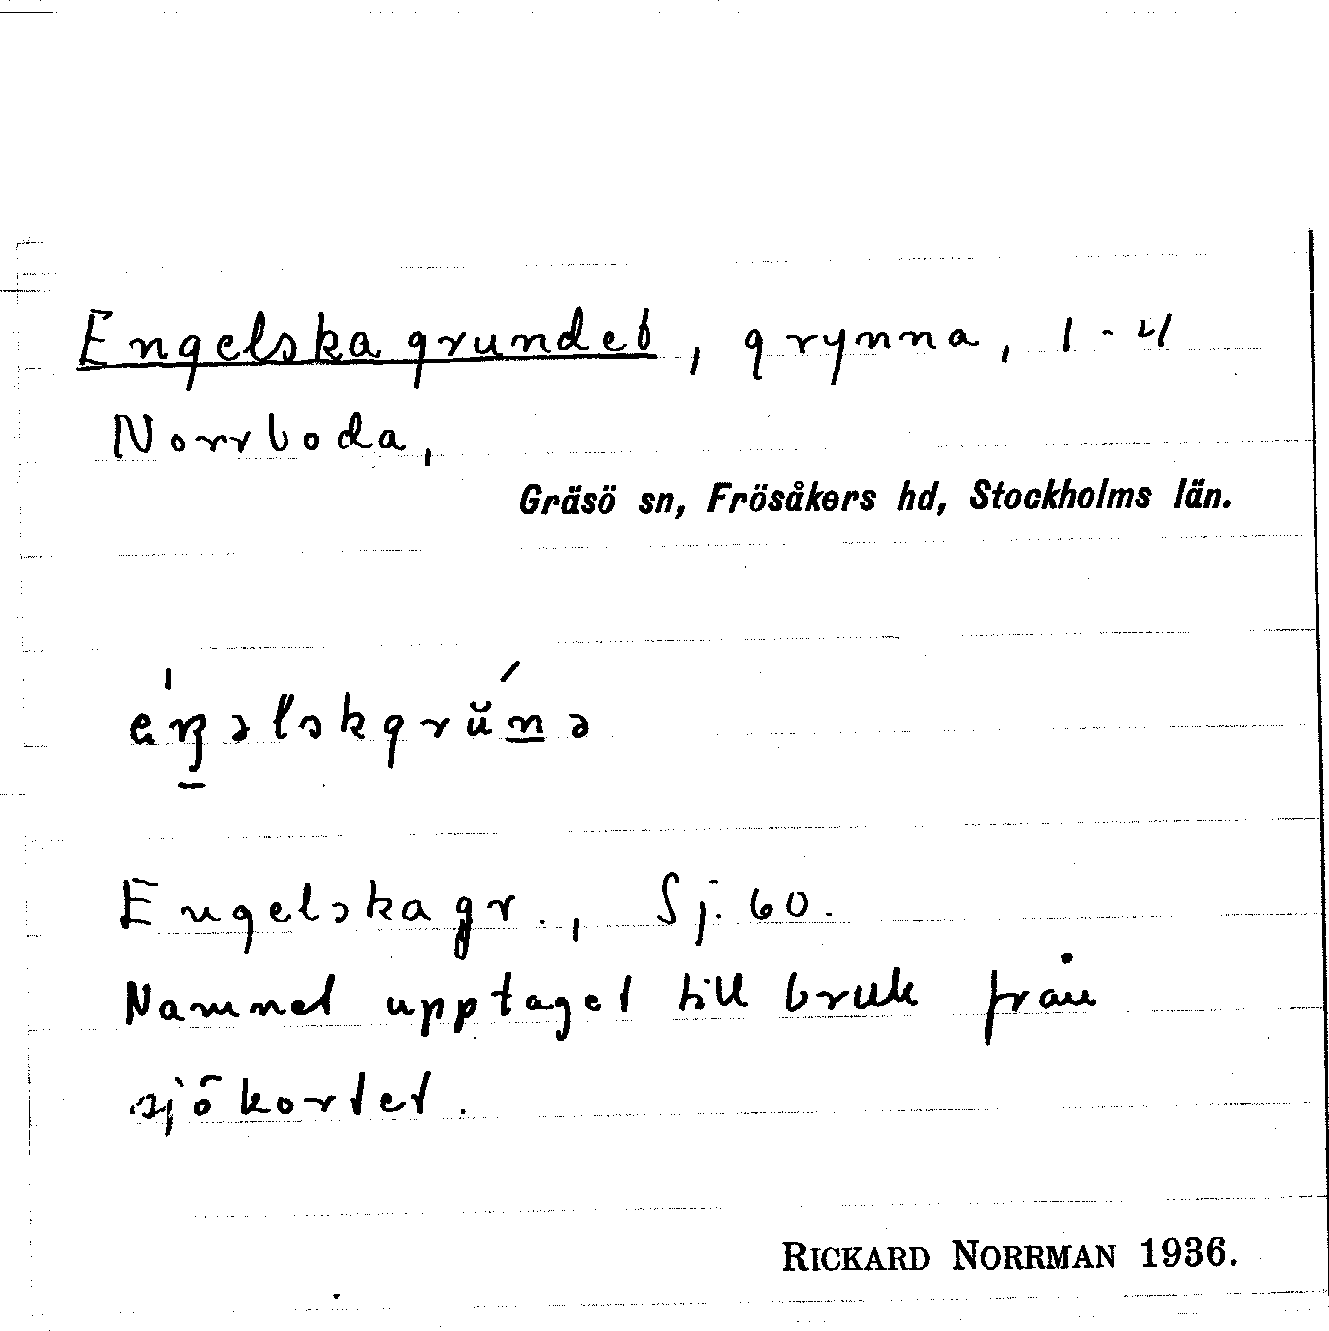 Engelska grundet, grynna, 1-4
Norrboda,
Gräsö sn, Frösåkers hd, Stockholms län.
Engelska gr., Sj. 60.
Namnet upptaget till bruk från
sjökortet.
RICKARD NORRMAN 1936.